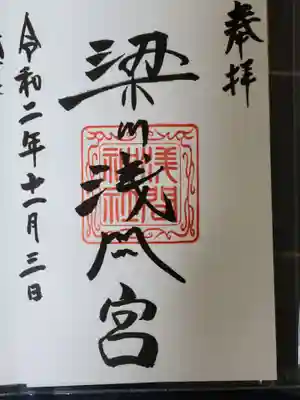 奉拝
梁川浅間宮
淺間神社
令和二年十一月三日